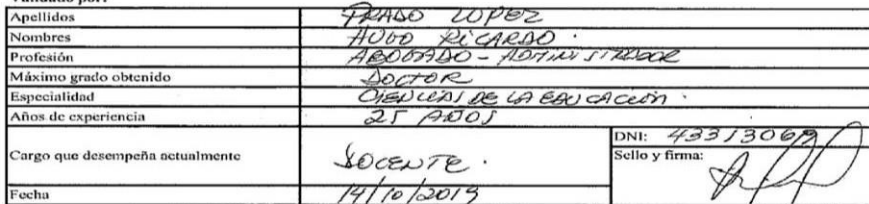 Validado por:
Apellidos PRADO LOPEZ
Nombres HUGO RICARDO.
Profesión ABOGADO - ADMINISTRADOR
Máximo grado obtenido DOCTOR
Especialidad CIENCIAS DE LA EDUCACION.
Años de experiencia 25 AÑOS
Cargo que desempeña actualmente DOCENTE.
DNI: 43313069
Sello y firma:
Fecha 14/10/2019